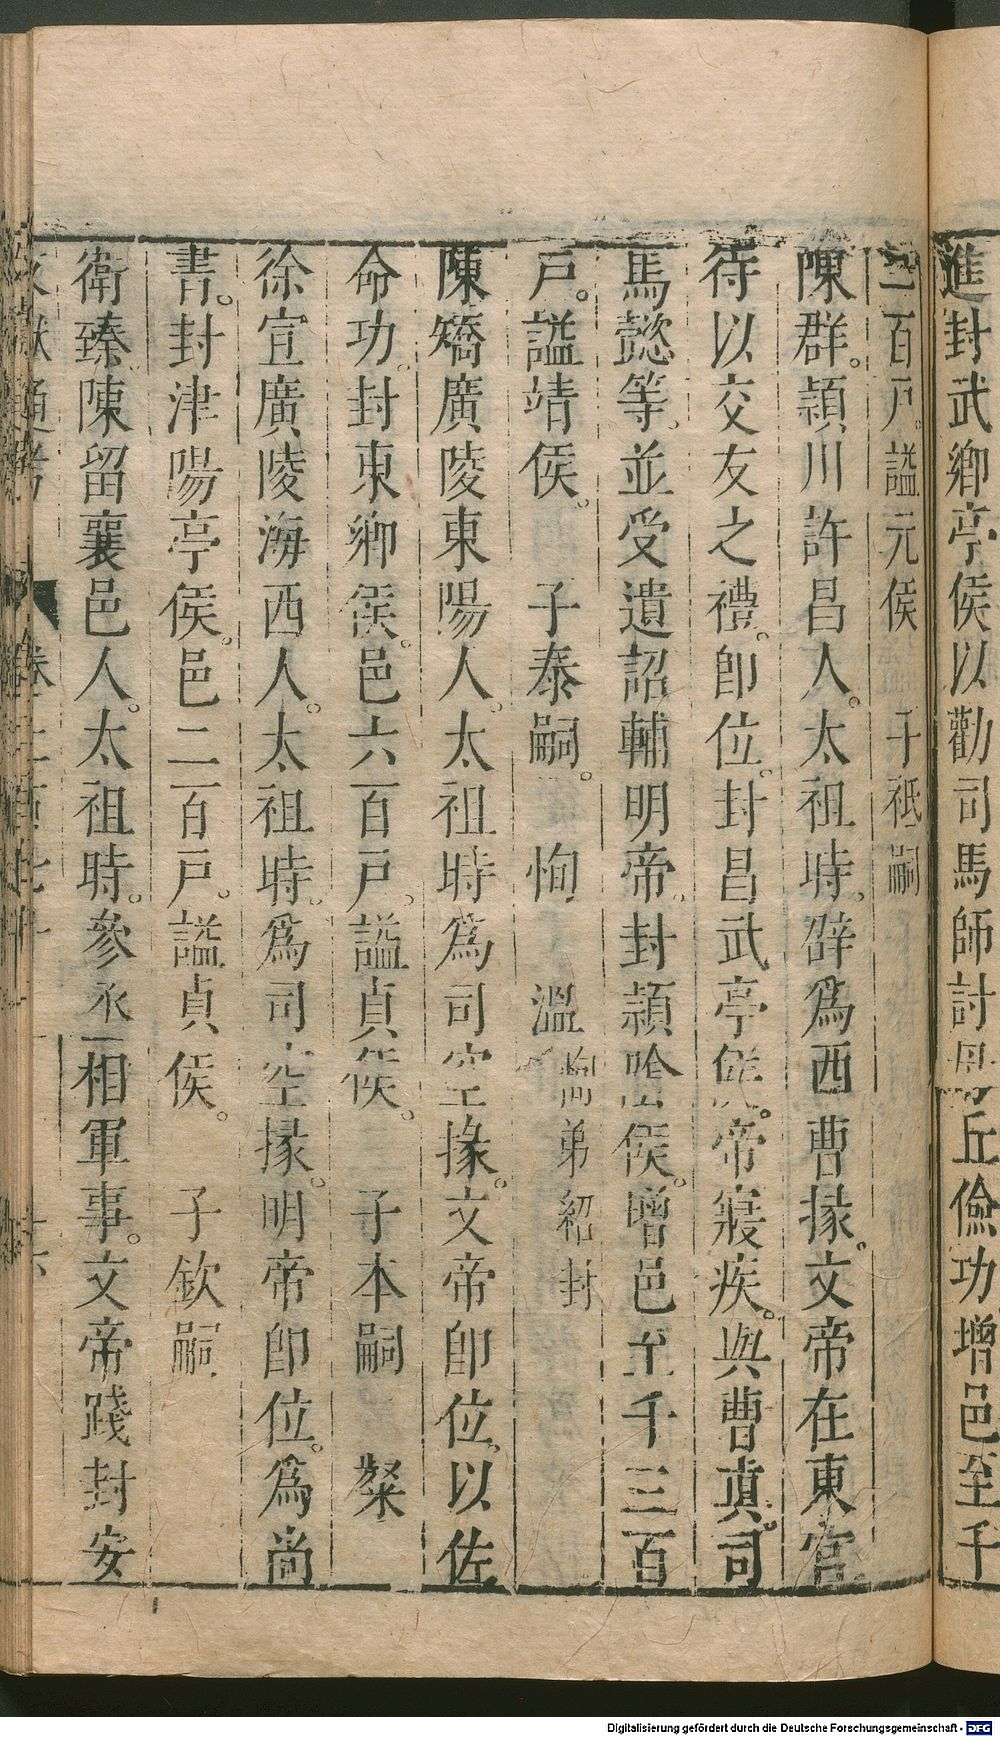 進封武鄉亭侯以勸司馬師討毋丘儉功增邑至千
三百戶。謚元侯 子祗嗣
陳群。潁川許昌人。太祖時。辟為西曹掾。文帝在東宮
待以交友之禮。卽位。封昌武亭侯。帝寢疾。與曹真。司
馬懿等。並受遺詔輔明帝。封潁陰侯。增邑至千三百
戶。謚靖侯。 子泰嗣。 恂 溫恂弟紹封
陳矯廣陵東陽人。太祖時為司空掾。文帝卽位。以佐
命功。封東鄉侯。邑六百戶。謚貞侯。 子本嗣 粲
徐宣廣陵海西人。太祖時。為司空掾。明帝卽位。為尚
書。封津陽亭侯。邑二百戶。謚貞侯。 子欽嗣
衛臻陳留襄邑人。太祖時。參丞相軍事。文帝踐封安
Digitalisierung gefördert durch die Deutsche Forschungsgemeinschaft - DFG